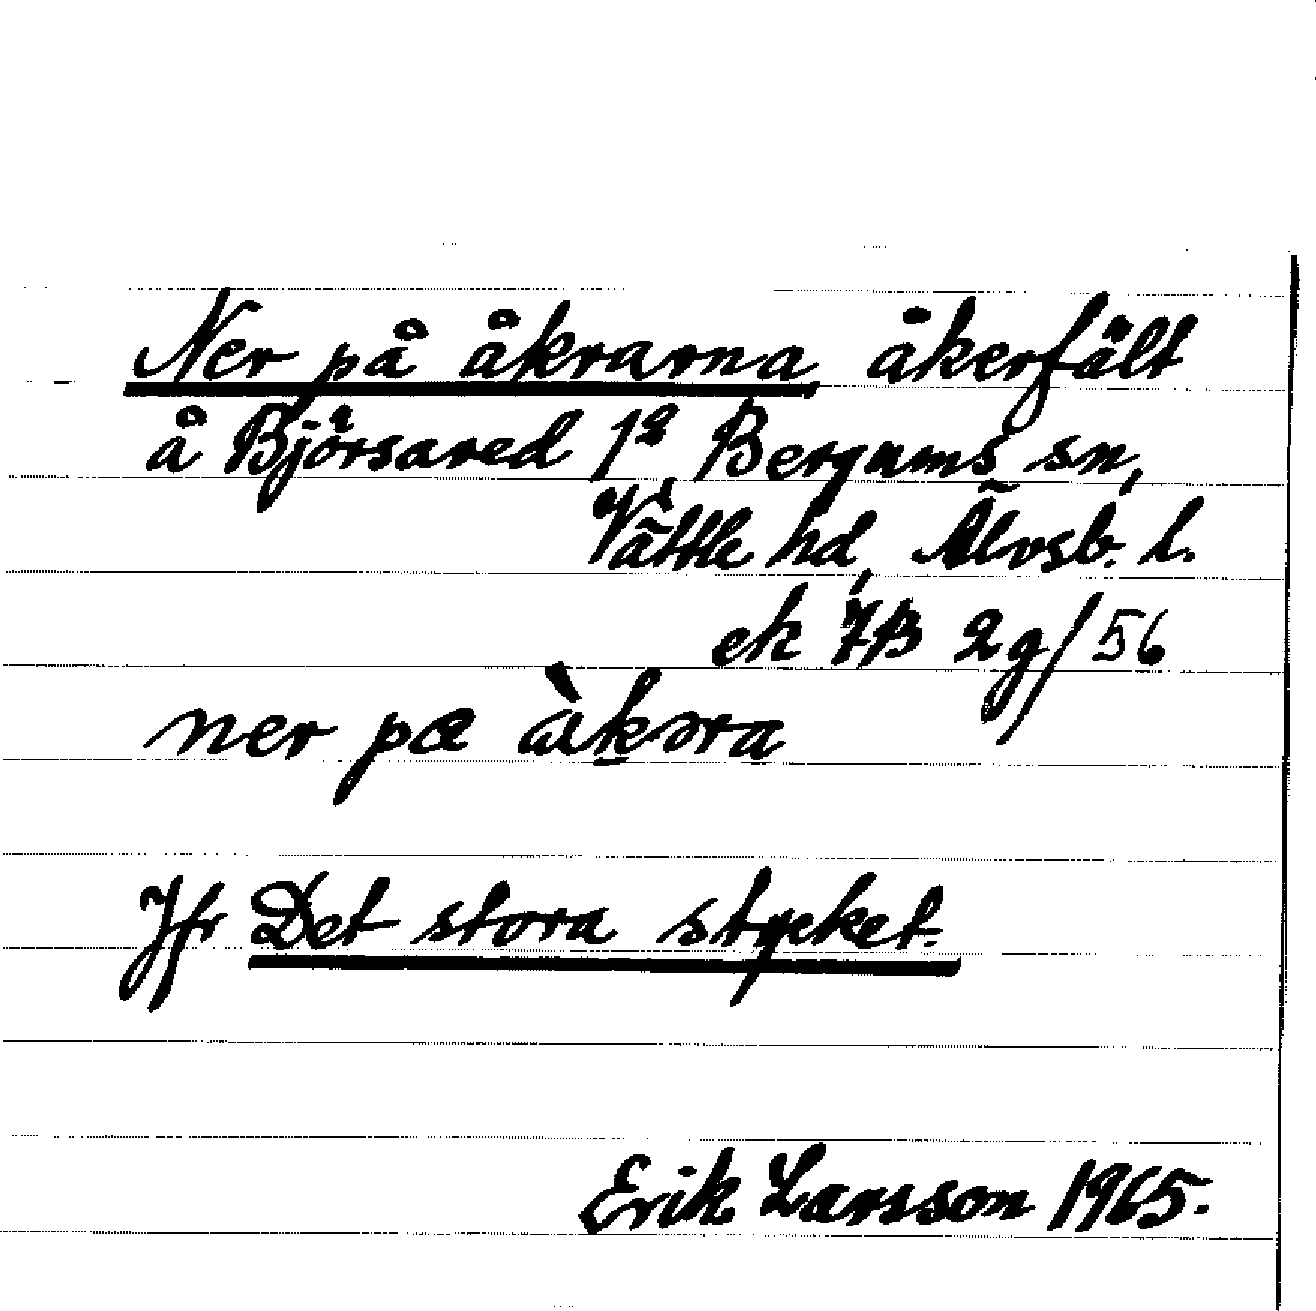 Ner på åkrarna åkerfält
å Björsared 1² Bergums sn,
Vättle hd, Älvsb. l.
ek 7B 2g/56
ner pæ àkəra
Jfr Det stora stycket.
Erik Larsson 1965.